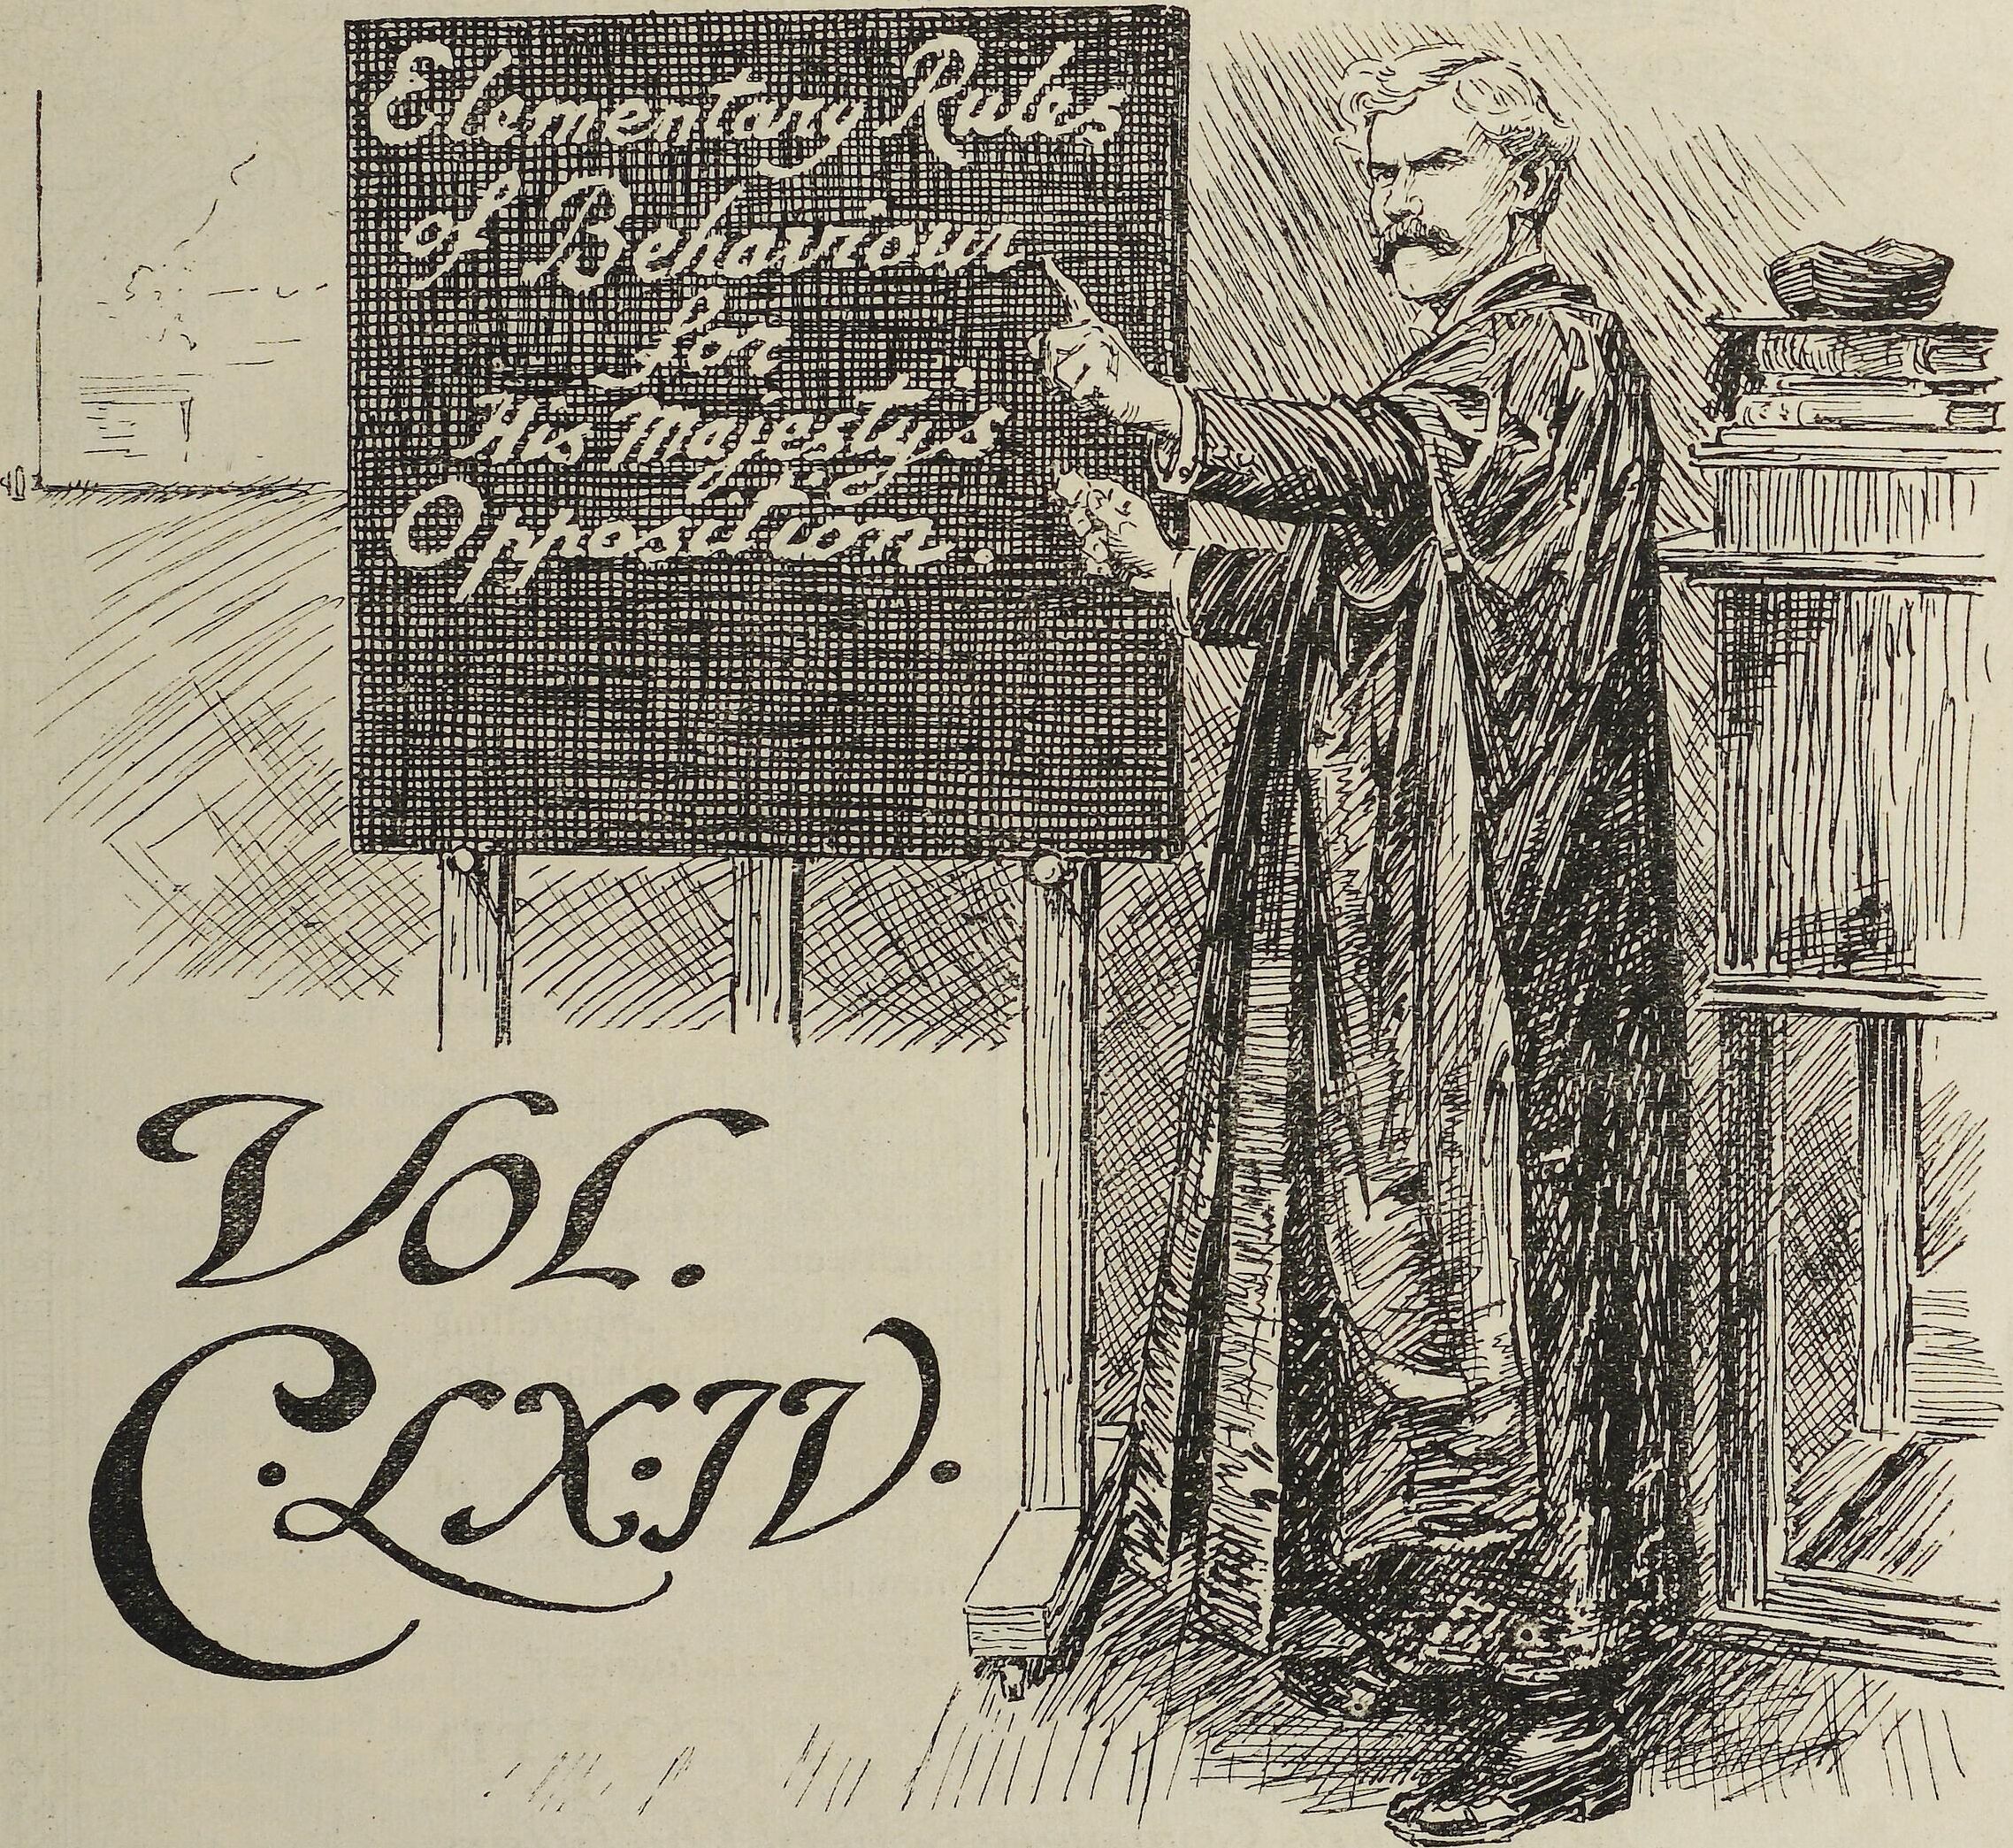 Elementary Rules
of Behaviour
for
His Majesty's
Opposition.
VOL.
CLXIV.